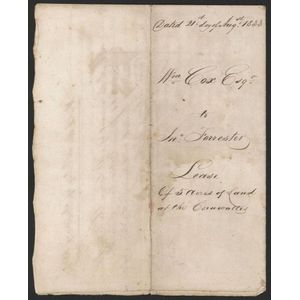 Dated 21st day of Augst 1843
Wm Cox Esqr
to
Jno. Forrester
Lease
Of 5 Acres of Land
at the